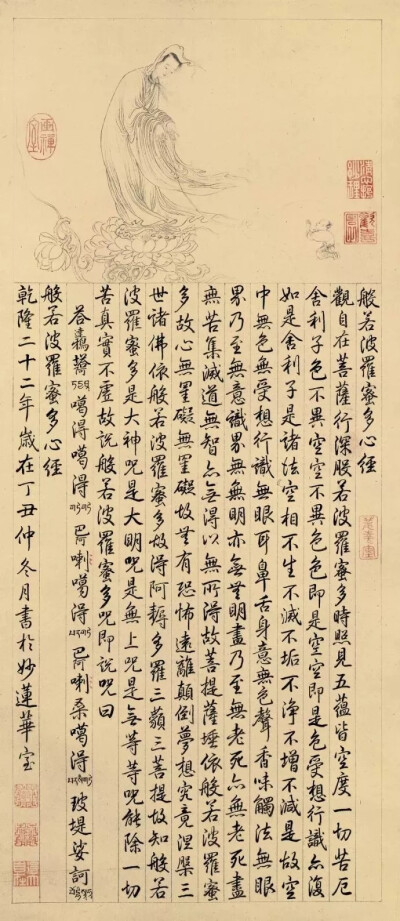 般若波羅蜜多心經
觀自在菩薩行深般若波羅蜜多時照見五蘊皆空度一切苦厄
舍利子色不異空空不異色色即是空空即是色受想行識亦復
如是舍利子是諸法空相不生不滅不垢不淨不增不減是故空
中無色無受想行識無眼耳鼻舌身意無色聲香味觸法無眼
界乃至無意識界無無明亦無無明盡乃至無老死亦無老死盡
無苦集滅道無智亦無得以無所得故菩提薩埵依般若波羅蜜
多故心無罣礙無罣礙故無有恐怖遠離顛倒夢想究竟涅槃三
世諸佛依般若波羅蜜多故得阿耨多羅三藐三菩提故知般若
波羅蜜多是大神咒是大明咒是無上咒是無等等咒能除一切
苦真實不虛故說般若波羅蜜多咒即說咒曰
噶得噶得喇噶得喇桑噶得玻堤娑訶
般若波羅蜜多心經
乾隆二十二年歲在丁丑仲冬月書於妙蓮華室